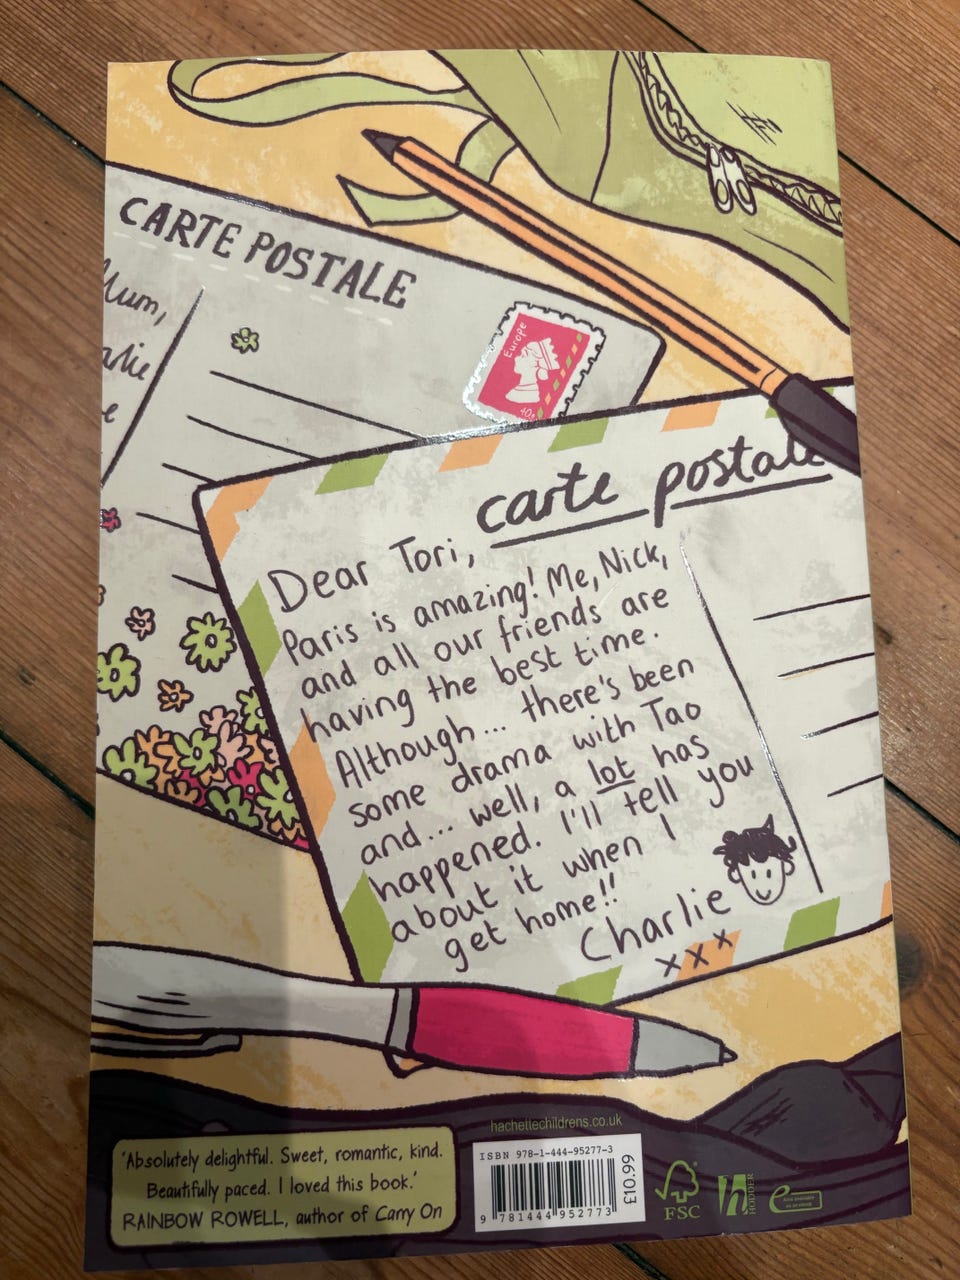 CARTE POSTALE
Mum,
arlie
e
Europe
carte postale
Dear Tori,
Paris is amazing! Me, Nick,
and all our friends are
having the best time.
Although... there's been
some drama with Tao
and... well, a lot has
happened. I'll tell you
about it when I
get home!!
Charlie
xxx
hachettechildrens.co.uk
'Absolutely delightful. Sweet, romantic, kind.
Beautifully paced. I loved this book.'
RAINBOW ROWELL, author of Carry On
ISBN 978-1-444-95277-3
9 781444 952773
£10.99
FSC
h
HODDER
e